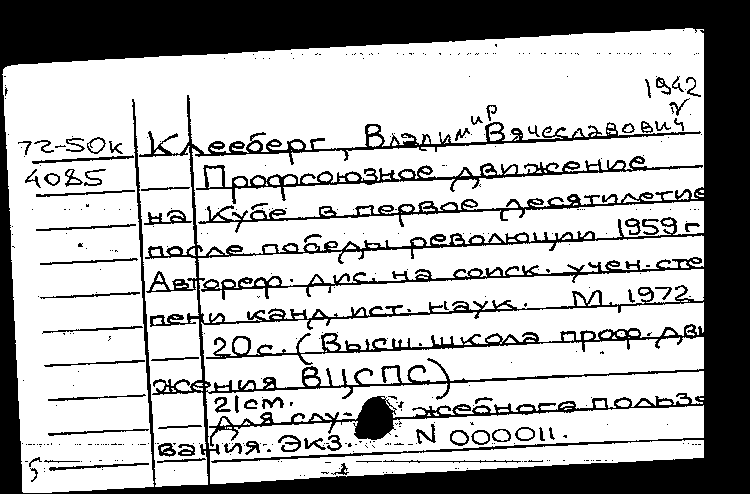 1942
72-50к Клееберг, Владимир Вячеславович
4085 Профсоюзное движение
на Кубе в первое десятилетие
после победы революции 1959 г
Автореф. дис. на соиск. учен. сте
пени канд. ист. наук. М., 1972.
20 с. (Высш. школа проф. дви
жения ВЦСПС)
21 см.
Для служебного пользо
вания. Экз. N 000011.